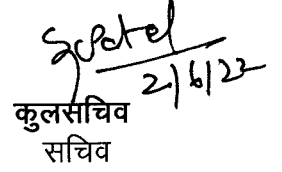 2/6/22
कुलसचिव
सचिव